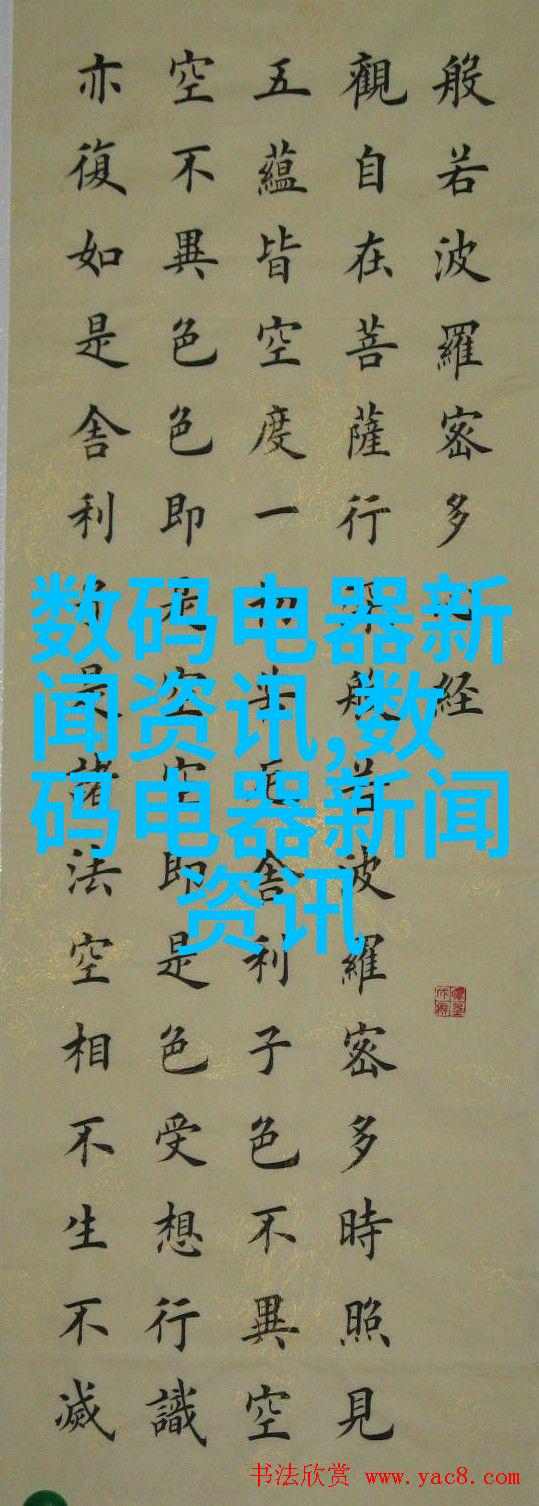 般若波羅密多心経
觀自在菩薩行深般若波羅密多時照見
五蘊皆空度一切苦厄舎利子色不異空
空不異色色即是空空即是色受想行識
亦復如是舎利子是諸法空相不生不滅
数码电器新
闻资讯,数
码电器新闻
资讯
书法欣赏 www.yac8.com